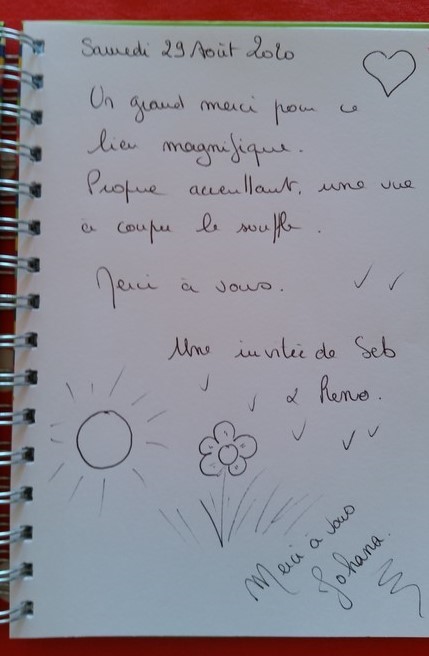 Samedi 29 Août 2020
Un grand merci pour ce
lieu magnifique.
Propre accuellant, une vue
à couper le souffle.
Merci à vous.
Une invitée de Seb
& Reno.
Merci à vous
Johana.